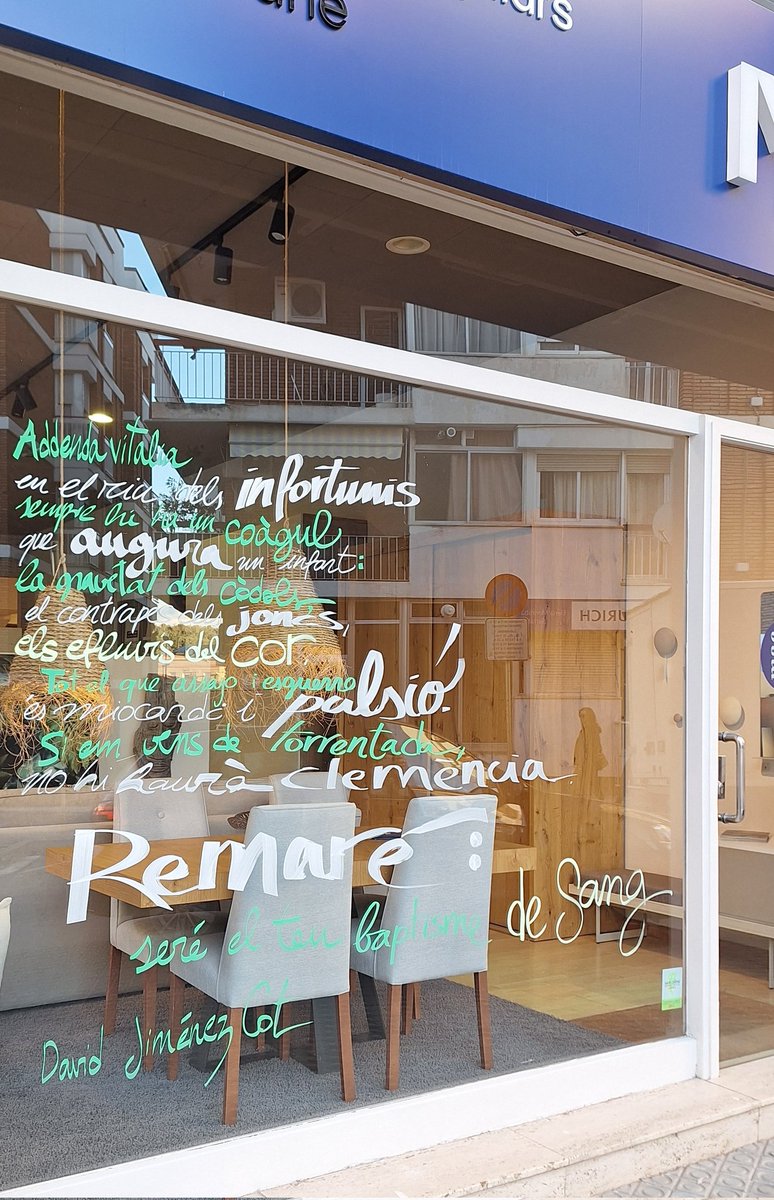 Addenda vitalia
en el riu dels infortunis
sempre hi ha un coàgul
que augura un infart:
la gravetat dels còdols,
el contrapès dels joncs,
els efluvis del cor.
Tot el que arrejo i esguerro
és miocardi i pulsió!
Si em vens de torrentada,
no hi haurà clemència.
Remaré:
seré el teu baptisme de sang
David Jiménez Cot
URICH